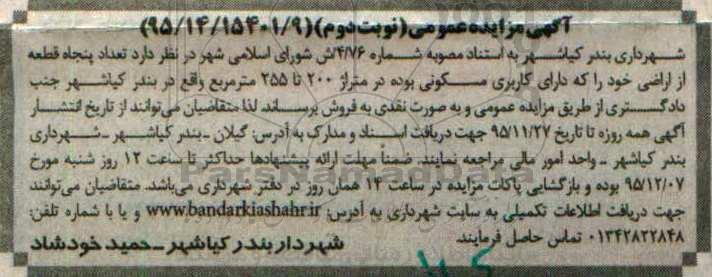 آگهی مزایده عمومی (نوبت دوم) (۹۵/۱۴/۱۵۴۰۱/۹)
شهرداری بندر کیاشهر به استناد مصوبه شماره ۴/۷۶/ش شورای اسلامی شهر در نظر دارد تعداد پنجاه قطعه
از اراضی خود را که دارای کاربری مسکونی بوده در متراژ ۲۰۰ تا ۲۵۵ مترمربع واقع در بندر کیاشهر جنب
دادگستری از طریق مزایده عمومی و به صورت نقدی به فروش برساند. لذا متقاضیان می‌توانند از تاریخ انتشار
آگهی همه روزه تا تاریخ ۹۵/۱۱/۲۷ جهت دریافت اسناد و مدارک به آدرس: گیلان ـ بندر کیاشهر ـ شهرداری
بندر کیاشهر ـ واحد امور مالی مراجعه نمایند. ضمناً مهلت ارائه پیشنهادها حداکثر تا ساعت ۱۲ روز شنبه مورخ
۹۵/۱۲/۰۷ بوده و بازگشایی پاکات مزایده در ساعت ۱۴ همان روز در دفتر شهرداری می‌باشد. متقاضیان می‌توانند
جهت دریافت اطلاعات تکمیلی به سایت شهرداری به آدرس: www.bandarkiashahr.ir و یا با شماره تلفن:
۰۱۳۴۲۸۲۲۸۴۸ تماس حاصل فرمایند.
شهردار بندر کیاشهر ـ حمید خودشاد
ParsNamadData